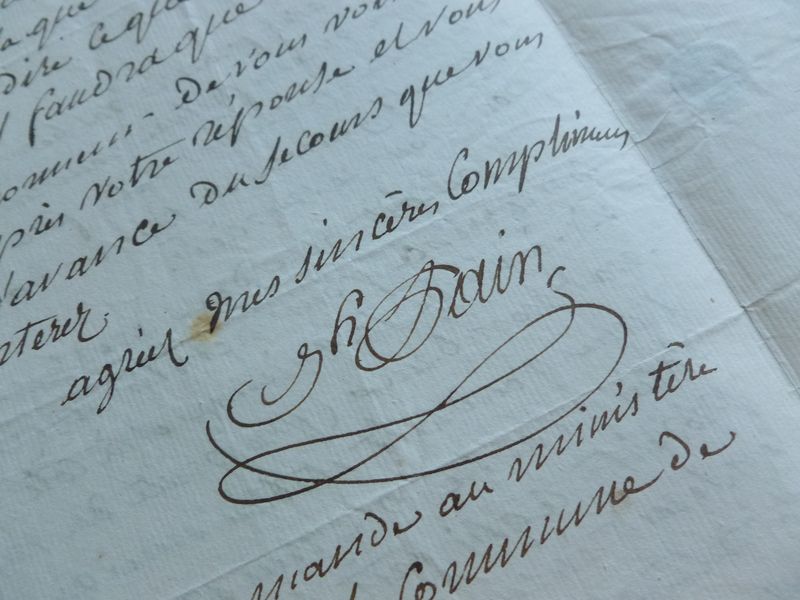 que
dire ce que
faudra que
De vous voir
près votre réponse et vous
d'avance du secours que vous
agréez mes sincères Complimens
Dain
mande au ministère
Commune de